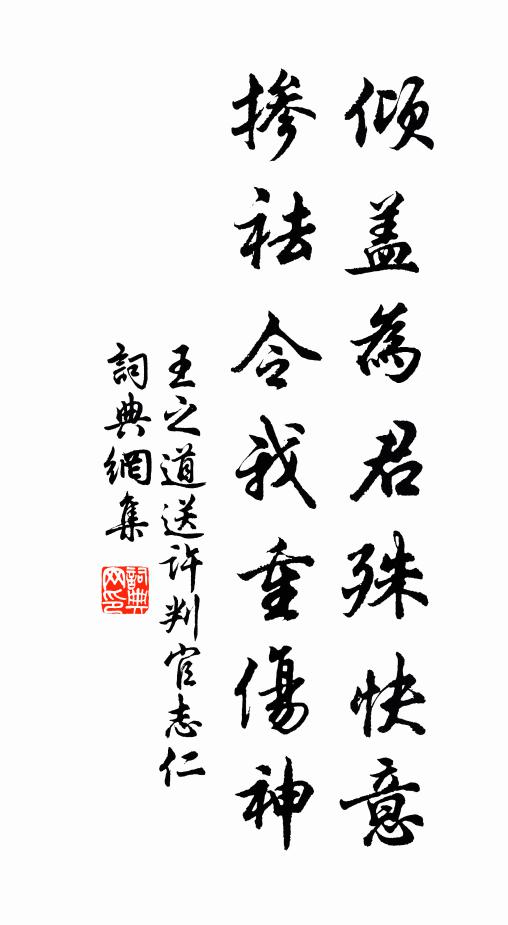 傾盖為君殊快意
掺袪令我重傷神
王之道送許判官志仁
詞典網集
詞典網印